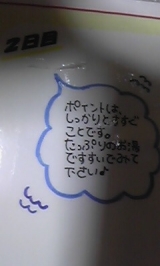 2日目
ポイントは、
しっかりとすすぐ
ことです。
たっぷりのお湯
ですすいでみて
下さい♪